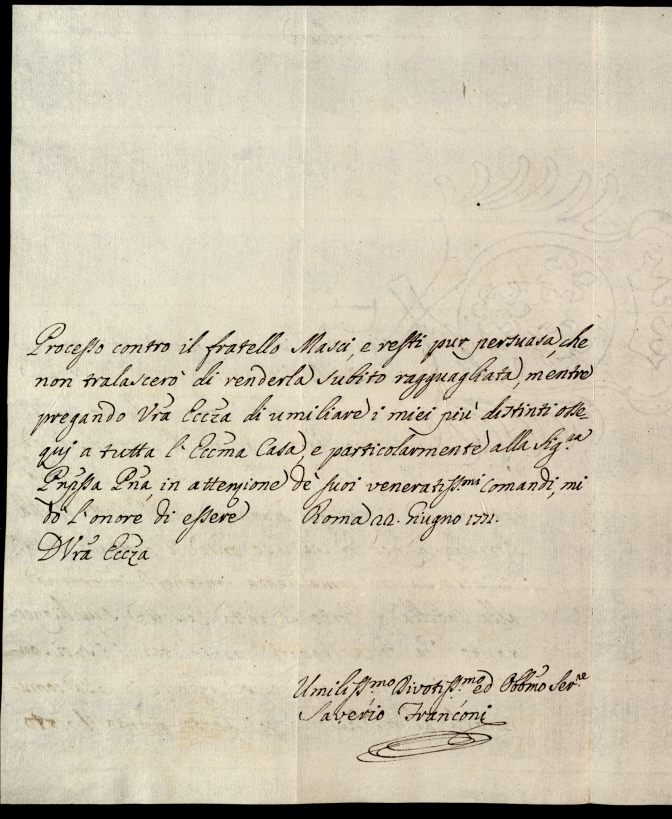 Processo contro il fratello Masci, e resti pur persuasa, che
non tralascerò di renderla subito ragguagliata, mentre
pregando Vrã Eccza di umiliare i miei più distinti osse-
quj a tutta l'Eccma Casa, e particolarmente alla Sig.ra
Pnpssa Pnã, in attenzione de suoi veneratiss.mi comandi, mi
dò l'onore di essere Roma 22. Giugno 1771.
D Vrã Eccza
Umiliss.mo Divotiss.mo ed Obbmo Ser.re
Saverio Franconi